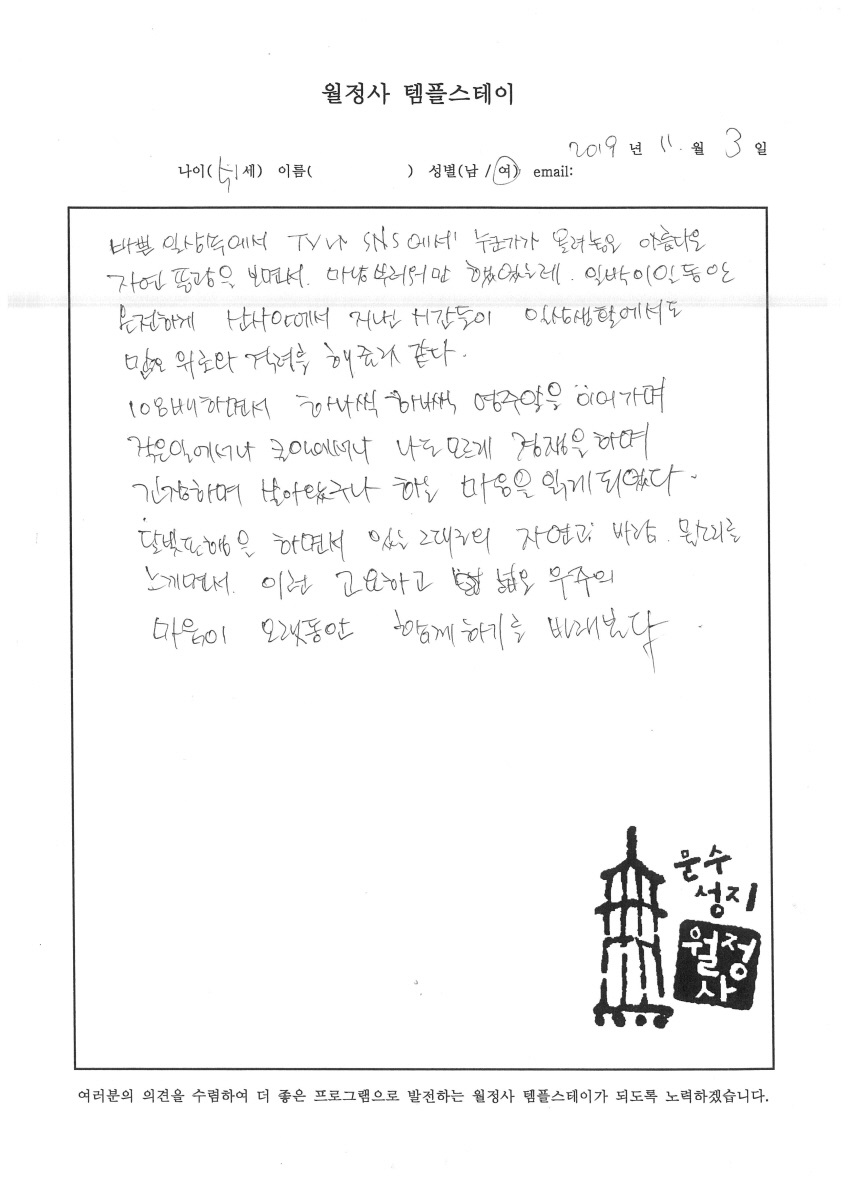 월정사 템플스테이
2019 년 11. 월 3 일
나이( 세) 이름( ) 성별(남 / 여) email:
바쁜 일상속에서 TV나 SNS에서 누군가가 올려놓은 아름다운
자연 풍광을 보면서. 마냥 부러워만 했었는데. 일박이일동안
온전하게 산사안에서 지낸 시간들이 일상생활에서도
많은 위로와 격려를 해줄것 같다.
108배하면서 하나씩 하나씩 염주알을 이어가며
작은일에서나 큰일에서나 나도 모르게 경쟁을 하며
긴장하며 살아왔구나 하는 마음을 읽게 되었다.
달빛포행을 하면서 있는 그대로의 자연과 바람. 물소리를
느끼면서. 이런 고요하고 넓은 우주의
마음이 오랫동안 함께하기를 바래본다.
문수
성지
월정
사
여러분의 의견을 수렴하여 더 좋은 프로그램으로 발전하는 월정사 템플스테이가 되도록 노력하겠습니다.